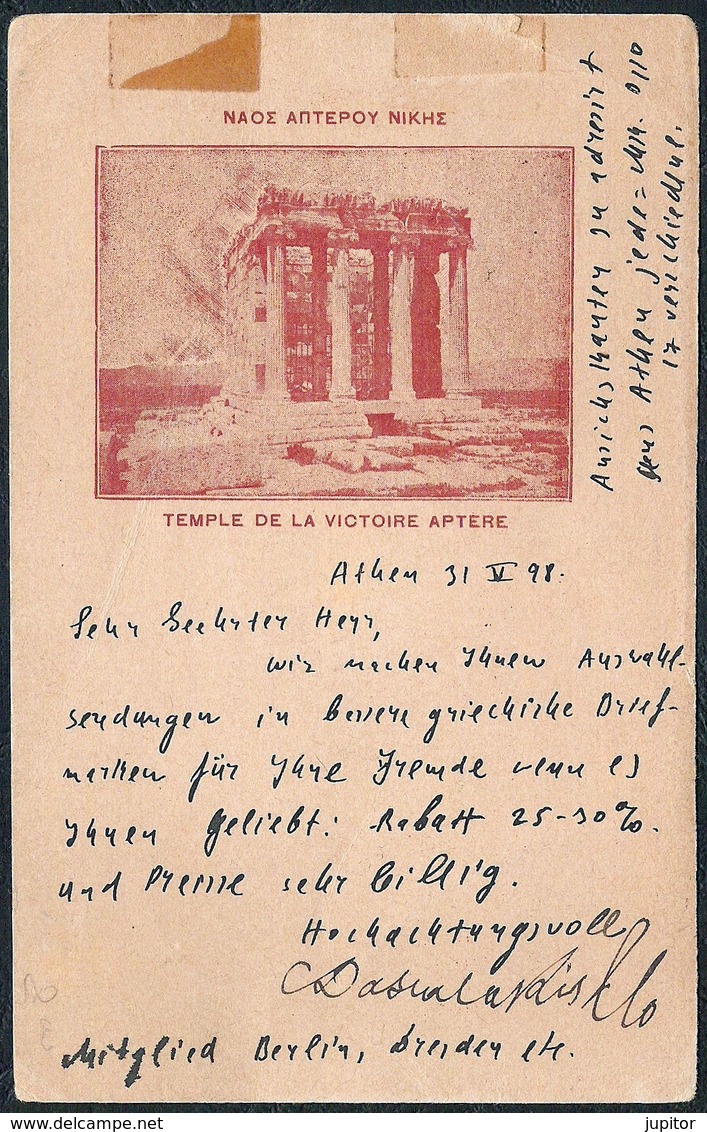 ΝΑΟΣ ΑΠΤΕΡΟΥ ΝΙΚΗΣ
TEMPLE DE LA VICTOIRE APTÈRE
Ansichtskarten zu adresirt
Athen jede = Mk. 0110
17 verschiedene.
Athen 31 V 98.
Sehr Geehrter Herr,
wir machen Ihnen Auswahl-
sendungen in bessere griechische Brief-
marken für Ihre Fremde wenn es
Ihnen geliebt: Rabatt 25-30%.
und Preise sehr billig.
Hochachtungsvoll
Dascalakis & Co
Mitglied Berlin, Dresden etc.
delcampe.net
jupitor